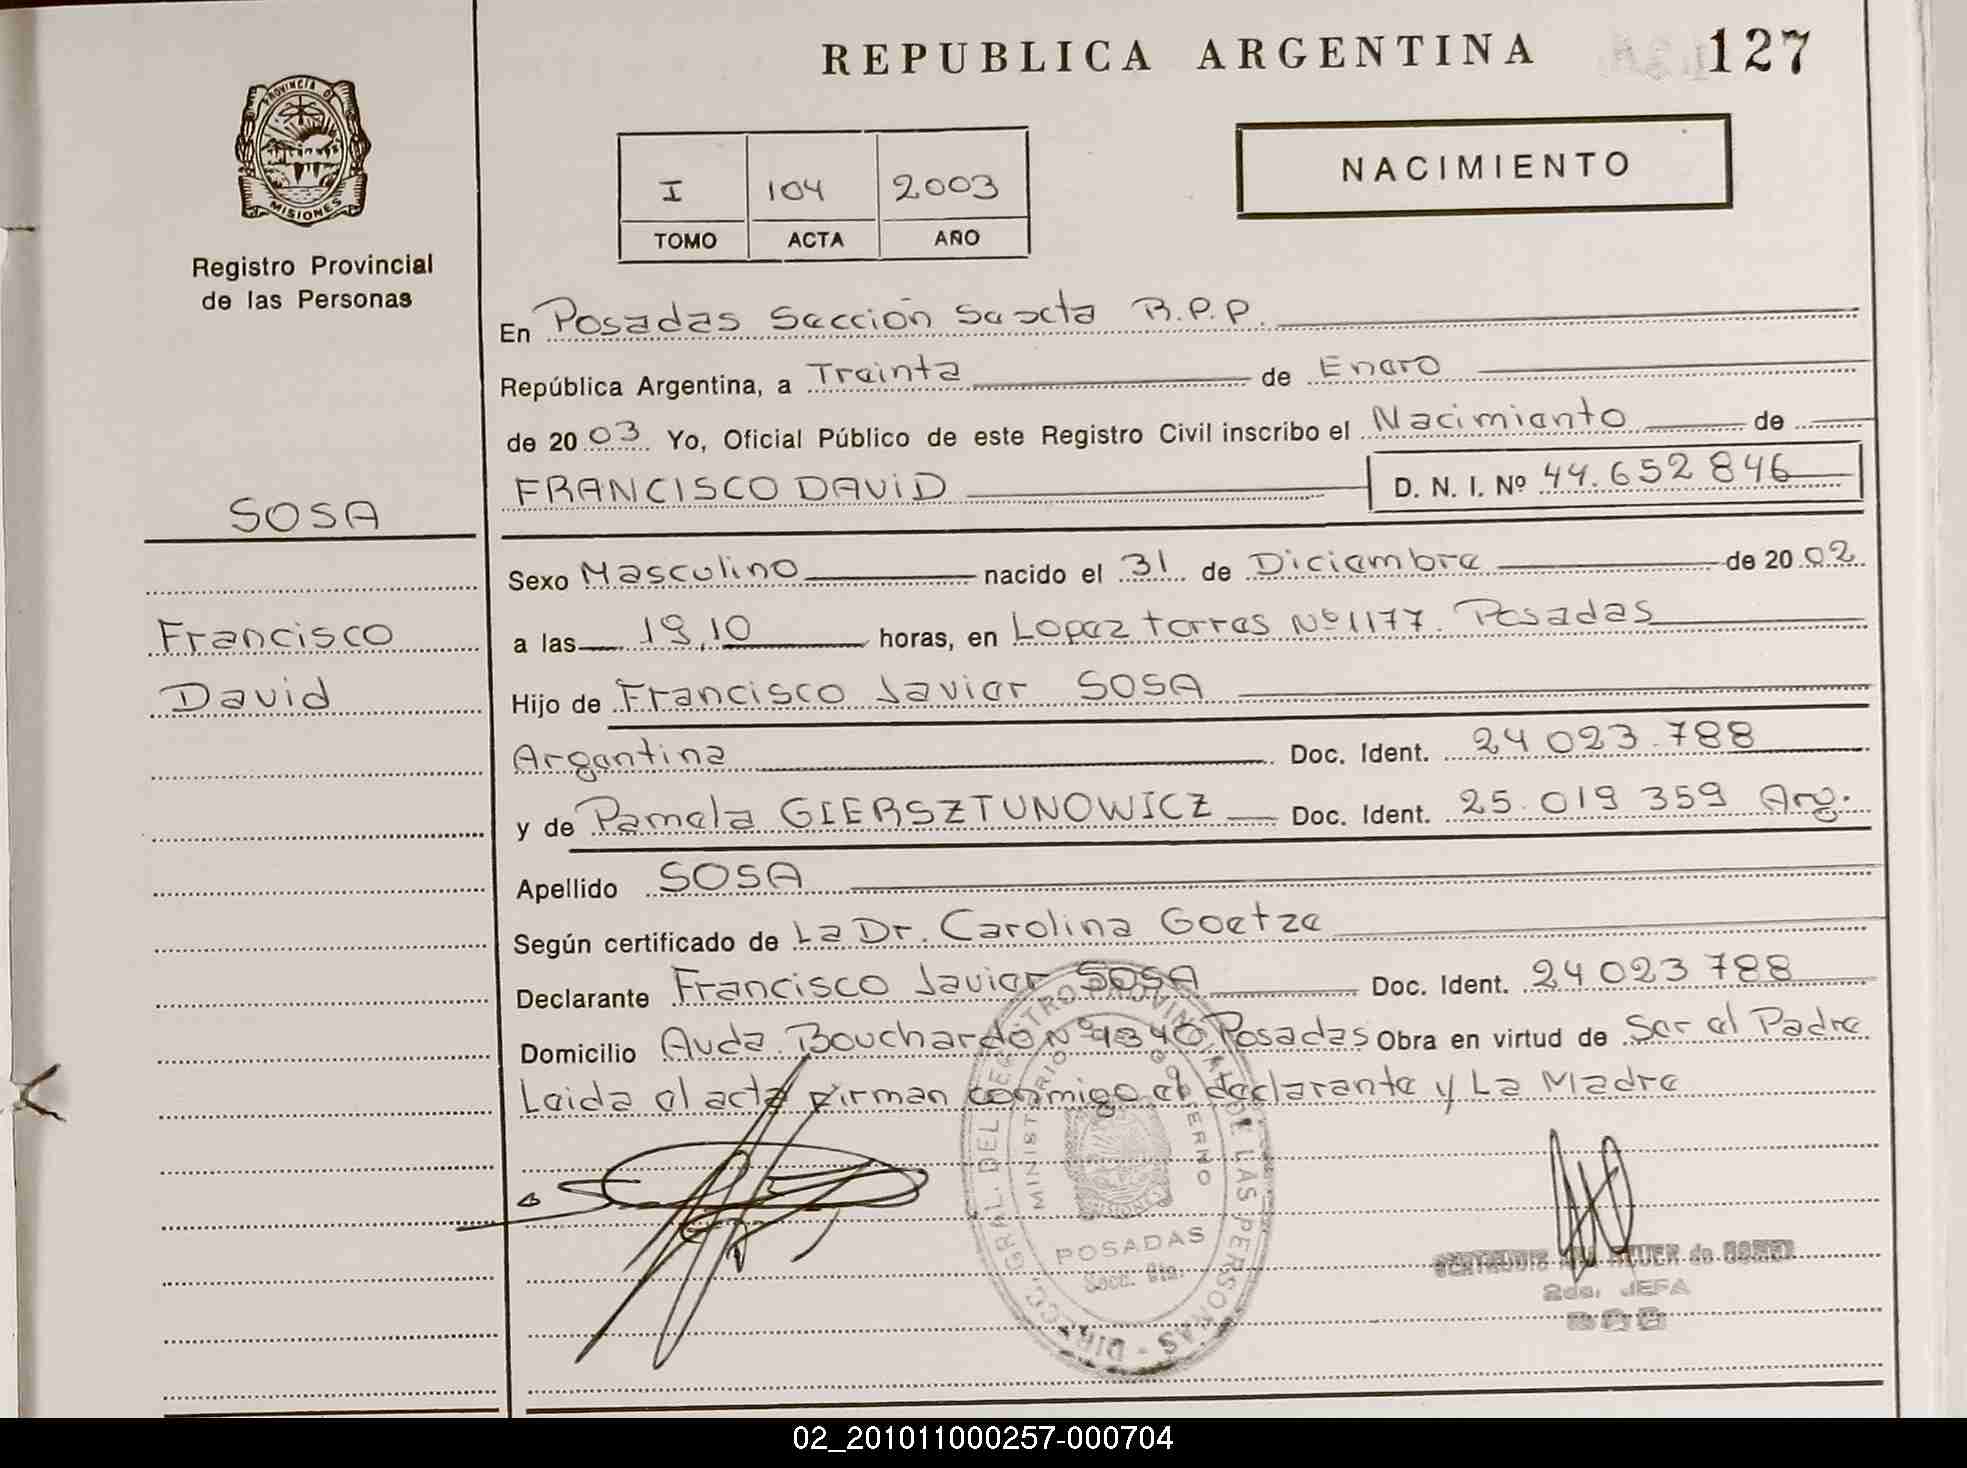 REPUBLICA ARGENTINA
127
PROVINCIA DE
MISIONES
Registro Provincial
de las Personas
NACIMIENTO
I 104 2003
TOMO ACTA AÑO
En Posadas Sección Sexta R.P.P.
República Argentina, a Treinta de Enero
de 20 03 Yo, Oficial Público de este Registro Civil inscribo el Nacimiento de
FRANCISCO DAVID D. N. I. Nº 44.652846
SOSA
Francisco
David
Sexo Masculino nacido el 31 de Diciembre de 20 02
a las 19,10 horas, en Lopez torres Nº 1177. Posadas
Hijo de Francisco Javier SOSA
Argentina Doc. Ident. 24 023.788
y de Pamela GIERSZTUNOWICZ Doc. Ident. 25.019 359 Arg.
Apellido SOSA
Según certificado de La Dr. Carolina Goetze
Declarante Francisco Javier SOSA Doc. Ident. 24 023 788
Domicilio Avda. Bouchardo Nº 4340 Posadas Obra en virtud de Ser el Padre
Leida el acta firman conmigo el declarante y La Madre
DIRECC. GRAL. DEL REGISTRO PROVINCIAL DE LAS PERSONAS
MINISTERIO GOBIERNO
POSADAS
Secc. 6ta.
de GOMEZ
2da. JEFA
02_201011000257-000704